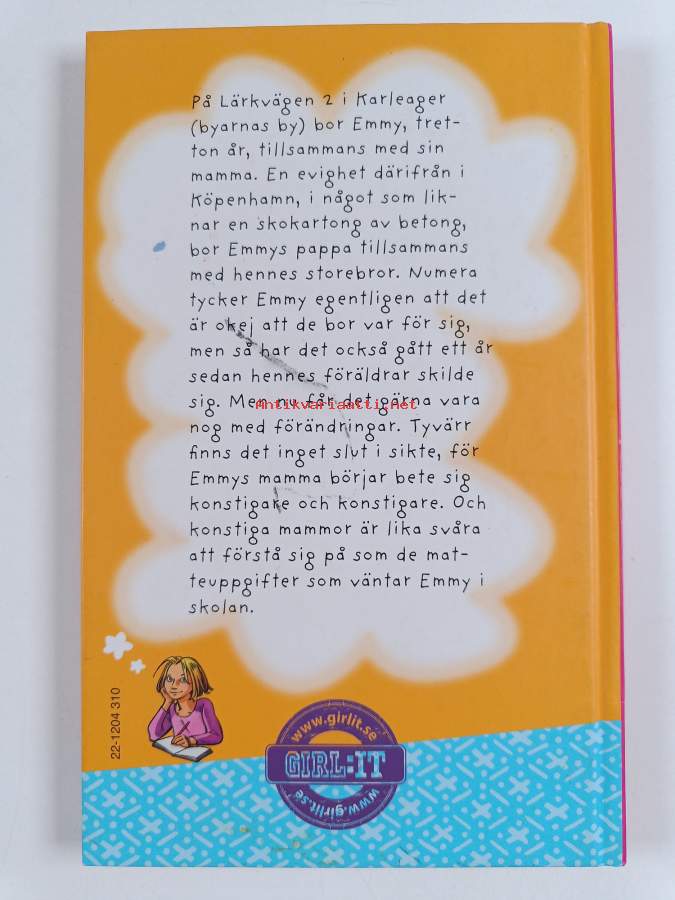 På Lärkvägen 2 i Karleager
(byarnas by) bor Emmy, tret-
ton år, tillsammans med sin
mamma. En evighet därifrån i
Köpenhamn, i något som lik-
nar en skokartong av betong,
bor Emmys pappa tillsammans
med hennes storebror. Numera
tycker Emmy egentligen att det
är okej att de bor var för sig,
men så har det också gått ett år
sedan hennes föräldrar skilde
sig. Men nu får det gärna vara
Antikvariaatti.net
nog med förändringar. Tyvärr
finns det inget slut i sikte, för
Emmys mamma börjar bete sig
konstigare och konstigare. Och
konstiga mammor är lika svåra
att förstå sig på som de mat-
teuppgifter som väntar Emmy i
skolan.
22-1204 310
www.girlit.se
GIRL:IT
www.girlit.se